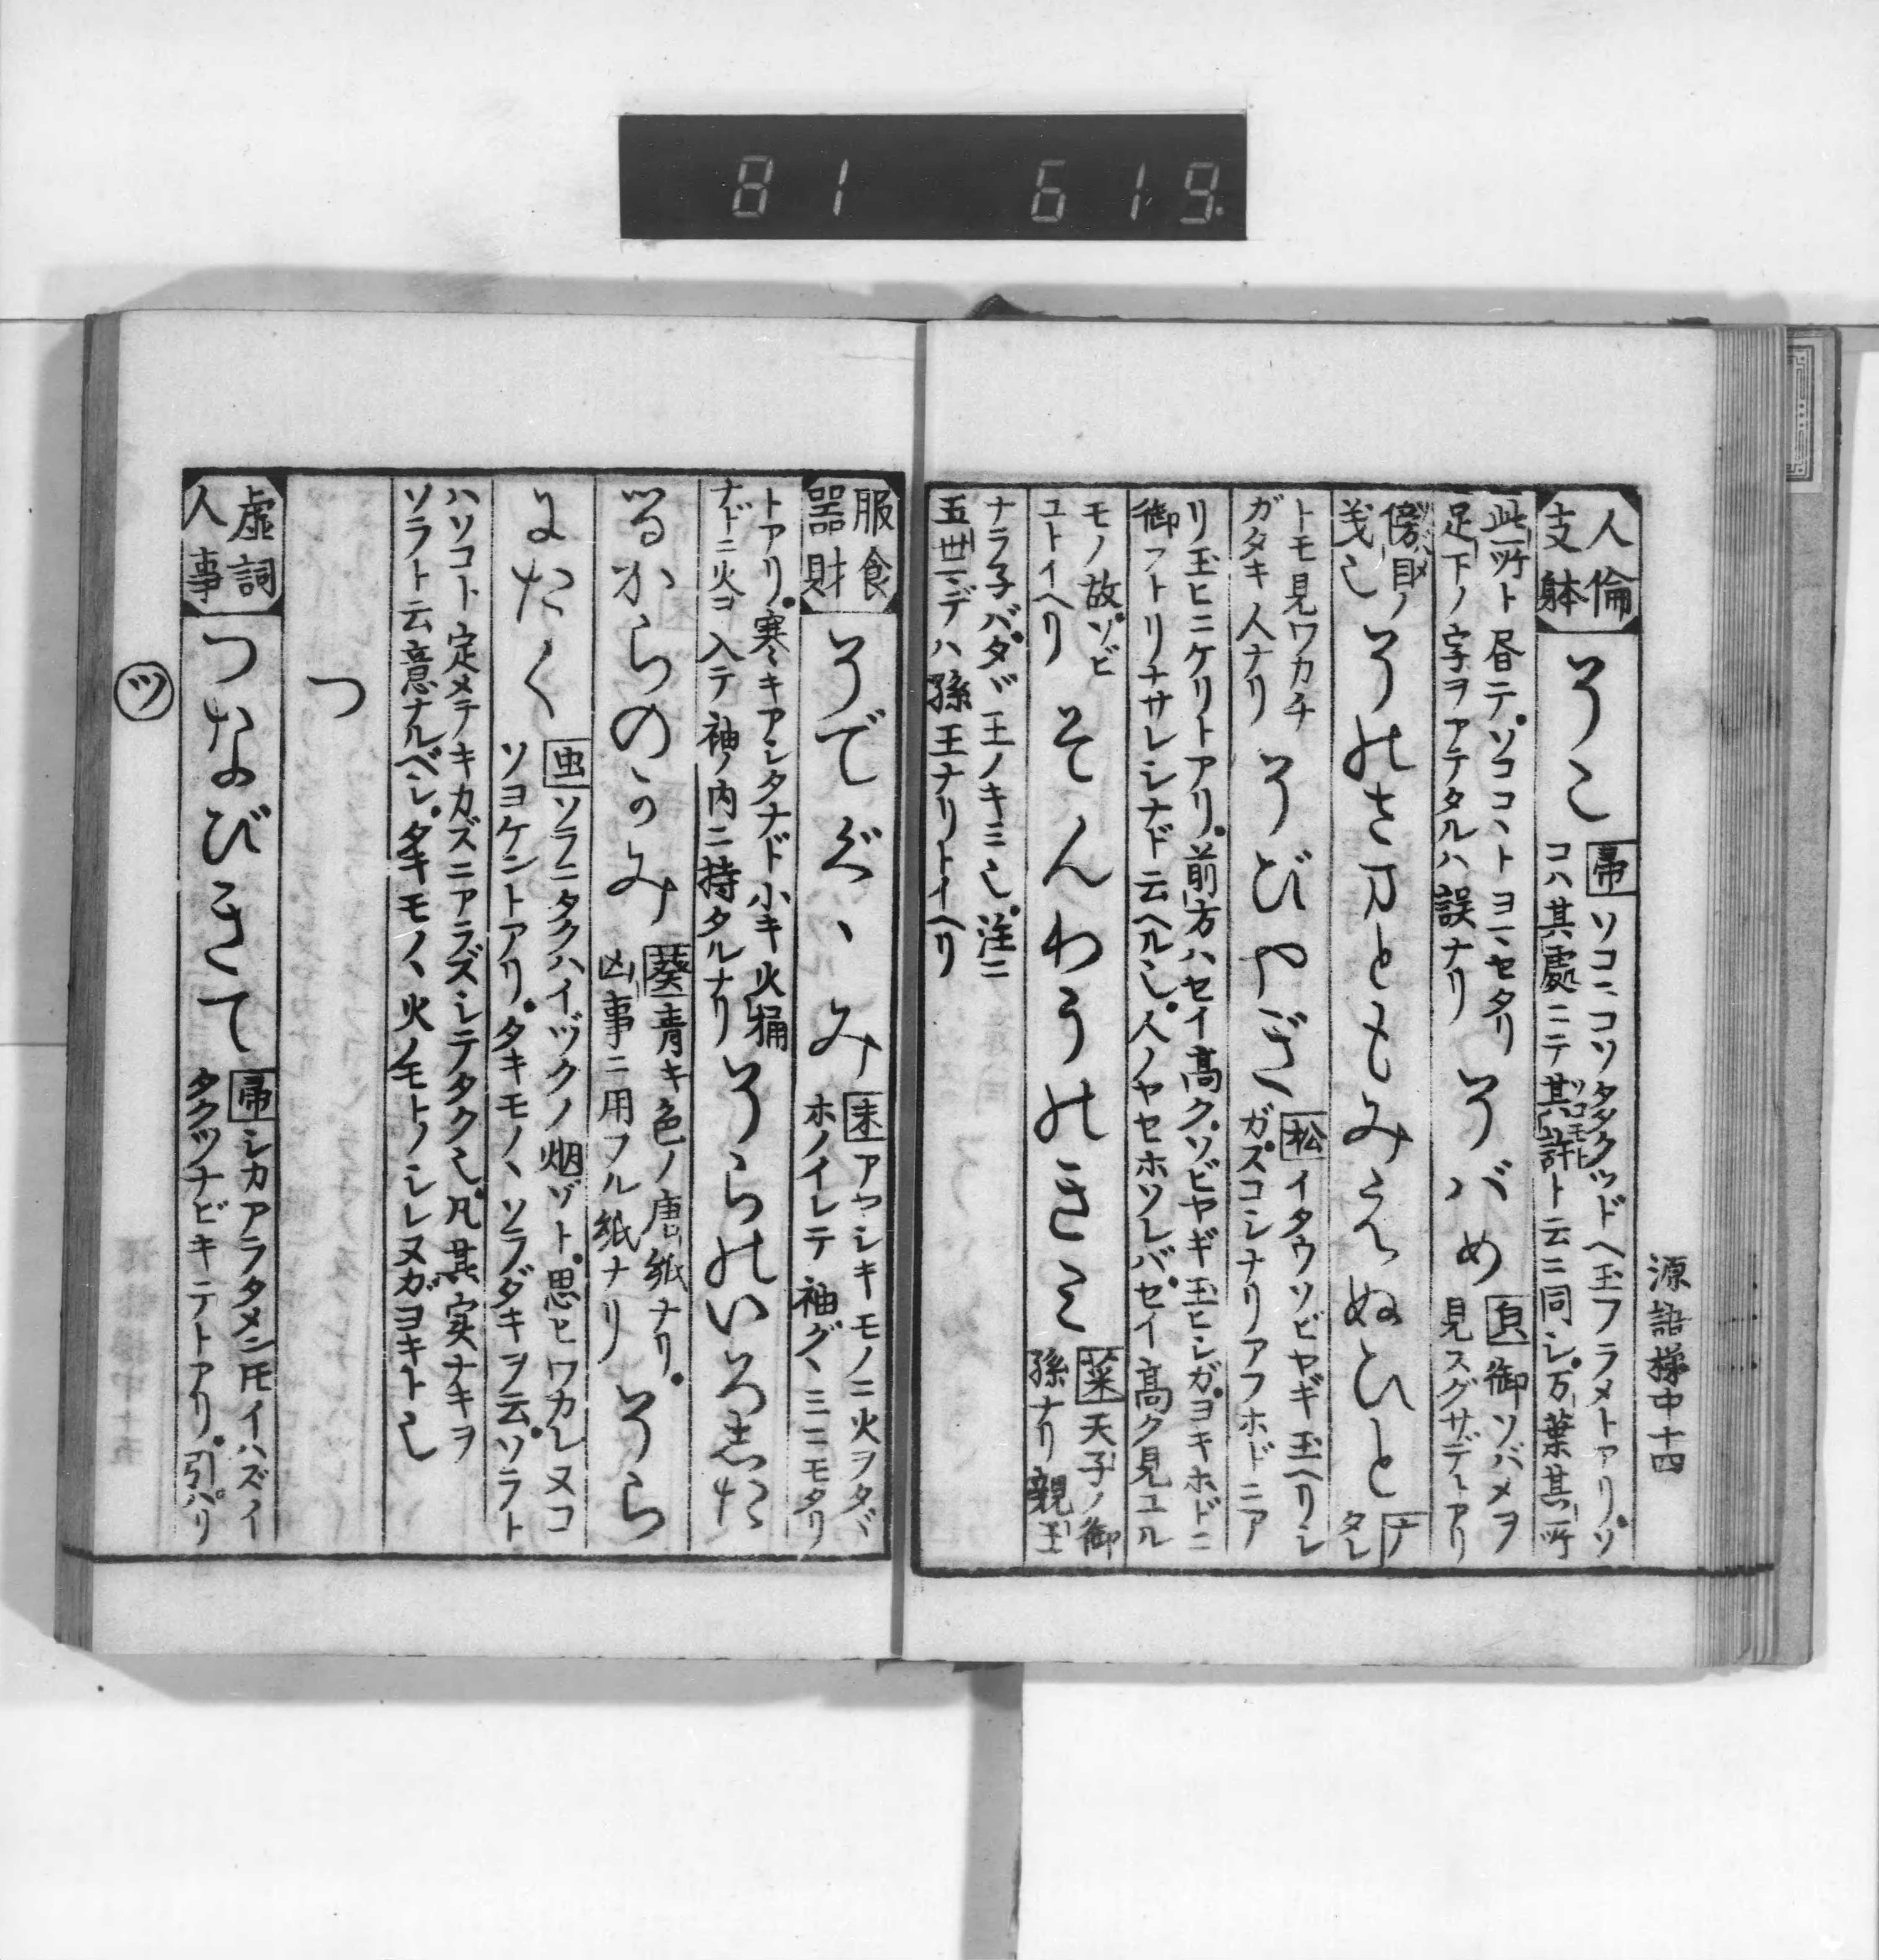 81 619
源語梯中十四
人倫
支躰
そこ
帚 ソコニコソタヾクヅドヘ玉フラメトアリ。ソ
コハ其處ニテ其許ト云ニ同シ。万葉其所
此所ト昏テ。ソコ〻トヨマセタリ
足下ノ字ヲアテタルハ誤ナリ
そバめ
貞 御ソバメヲ
見スグサデトアリ
傍目ノ
義也
そのさまともみえぬひと
トモ見ワカチ
ガタキ人ナリ
そびやぎ
松 イタウソビヤギ玉ヘリシ
ガ。スコシナリアフホドニア
リ玉ヒニケリトアリ。前方ハセイ高ク。ソビヤギ玉ヒシガ。ヨキホドニ
御フトリナサレシナド云ヘル也。人ノヤセホソレバ。セイ高ク見ユル
モノ故。ソビ
ユトイヘリ
そんわうのきミ
菜 天子ノ御
孫ナリ親王
ナラ子バ。タヾ王ノキミ也。注ニ
五世デハ孫王ナリトイヘリ
服食
器財
そでぐゝみ
末 アヤシキモノニ火ヲタヾ
ホノイレテ袖グヽミニモタリ
トアリ。寒キアシタナド小キ火桶
ナドニ火ヲ入テ袖ノ内ニ持タルナリ
そらのいろした
るからのかみ
葵 青キ色ノ唐紙ナリ。
凶事ニ用フル紙ナリ
そら
にたく
虫 ソラニタクハイヅクノ烟ゾト。思ヒワカレヌコ
ソヨケントアリ。タキモノヽソラダキヲ云。ソラト
ハソコト定メテキカズニアラズシテタク也。凡其実ナキヲ
ソラト云意ナルベシ。タキモノヽ火ノモトノシレヌガヨキト也
つ
虚詞
人事
つなびきて
帚 シカアラタメン𪜈イハズイ
タクツナビキテトアリ。引ハリ
ツ